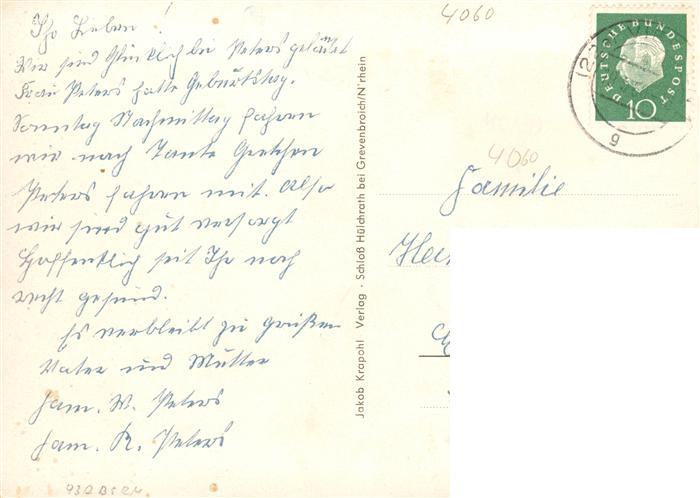 4060
Ihr Lieben!
Wir sind Glücklich bei Peters gelandet
Frau Peters hatte Geburtstag.
Sonntag Nachmittag fahren
wir nach Tante Gretchen
Peters fahren mit. Also
wir sind gut versorgt
Hoffentlich seit Ihr noch
recht gesund.
Es verbleibt zu grüßen
Vater und Mutter
Fam. W. Peters
Fam. R. Peters
Jakob Krapohl Verlag · Schloß Hülchrath bei Grevenbroich/N'rhein
DEUTSCHE BUNDESPOST
10
(22
g
4060
Familie